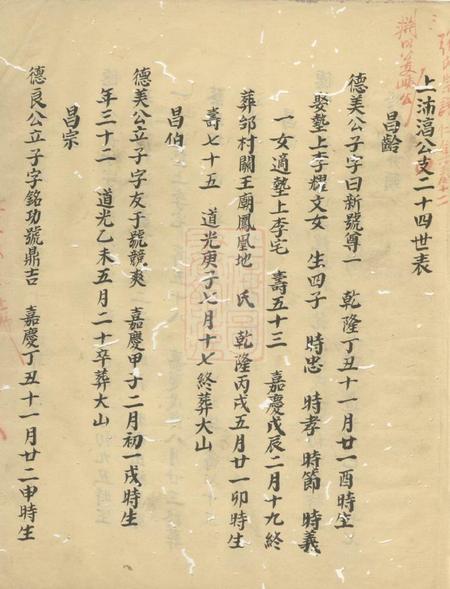 上沛湻公支二十四世表
昌齡
德美公子字曰新號尊一 乾隆丁丑十一月廿一酉時生
娶墊上李耀文女 生四子 時忠 時孝 時節 時義
一女適墊上李宅 壽五十三 嘉慶戊辰二月十九終
葬邹村關王廟鳳凰地 氏 乾隆丙戌五月廿一卯時生
壽七十五 道光庚子七月十七終葬大山
昌伯
德美公立子字友于號競爽 嘉慶甲子二月初一戌時生
年三十二 道光乙未五月二十卒葬大山
昌宗
德良公立子字銘功號鼎吉 嘉慶丁丑十一月廿二申時生